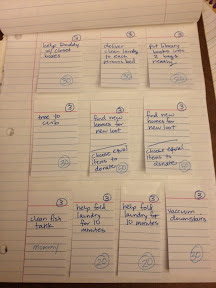 3
help Daddy
w/ closet
boxes
50
3
deliver
clean laundry
to each
persons bed
50
3
put library
books into
2 bags
neatly
20
3
tree to
curb
30
3
find new
homes for
new loot
choose equal
items to
donate
50
3
find new
homes for
new loot
choose equal
items to
donate
50
3
clean fish
tank
mommy
3
help fold
laundry
for 10
minutes
50
3
help fold
laundry for
10 minutes
50
3
vacuum
downstairs
50